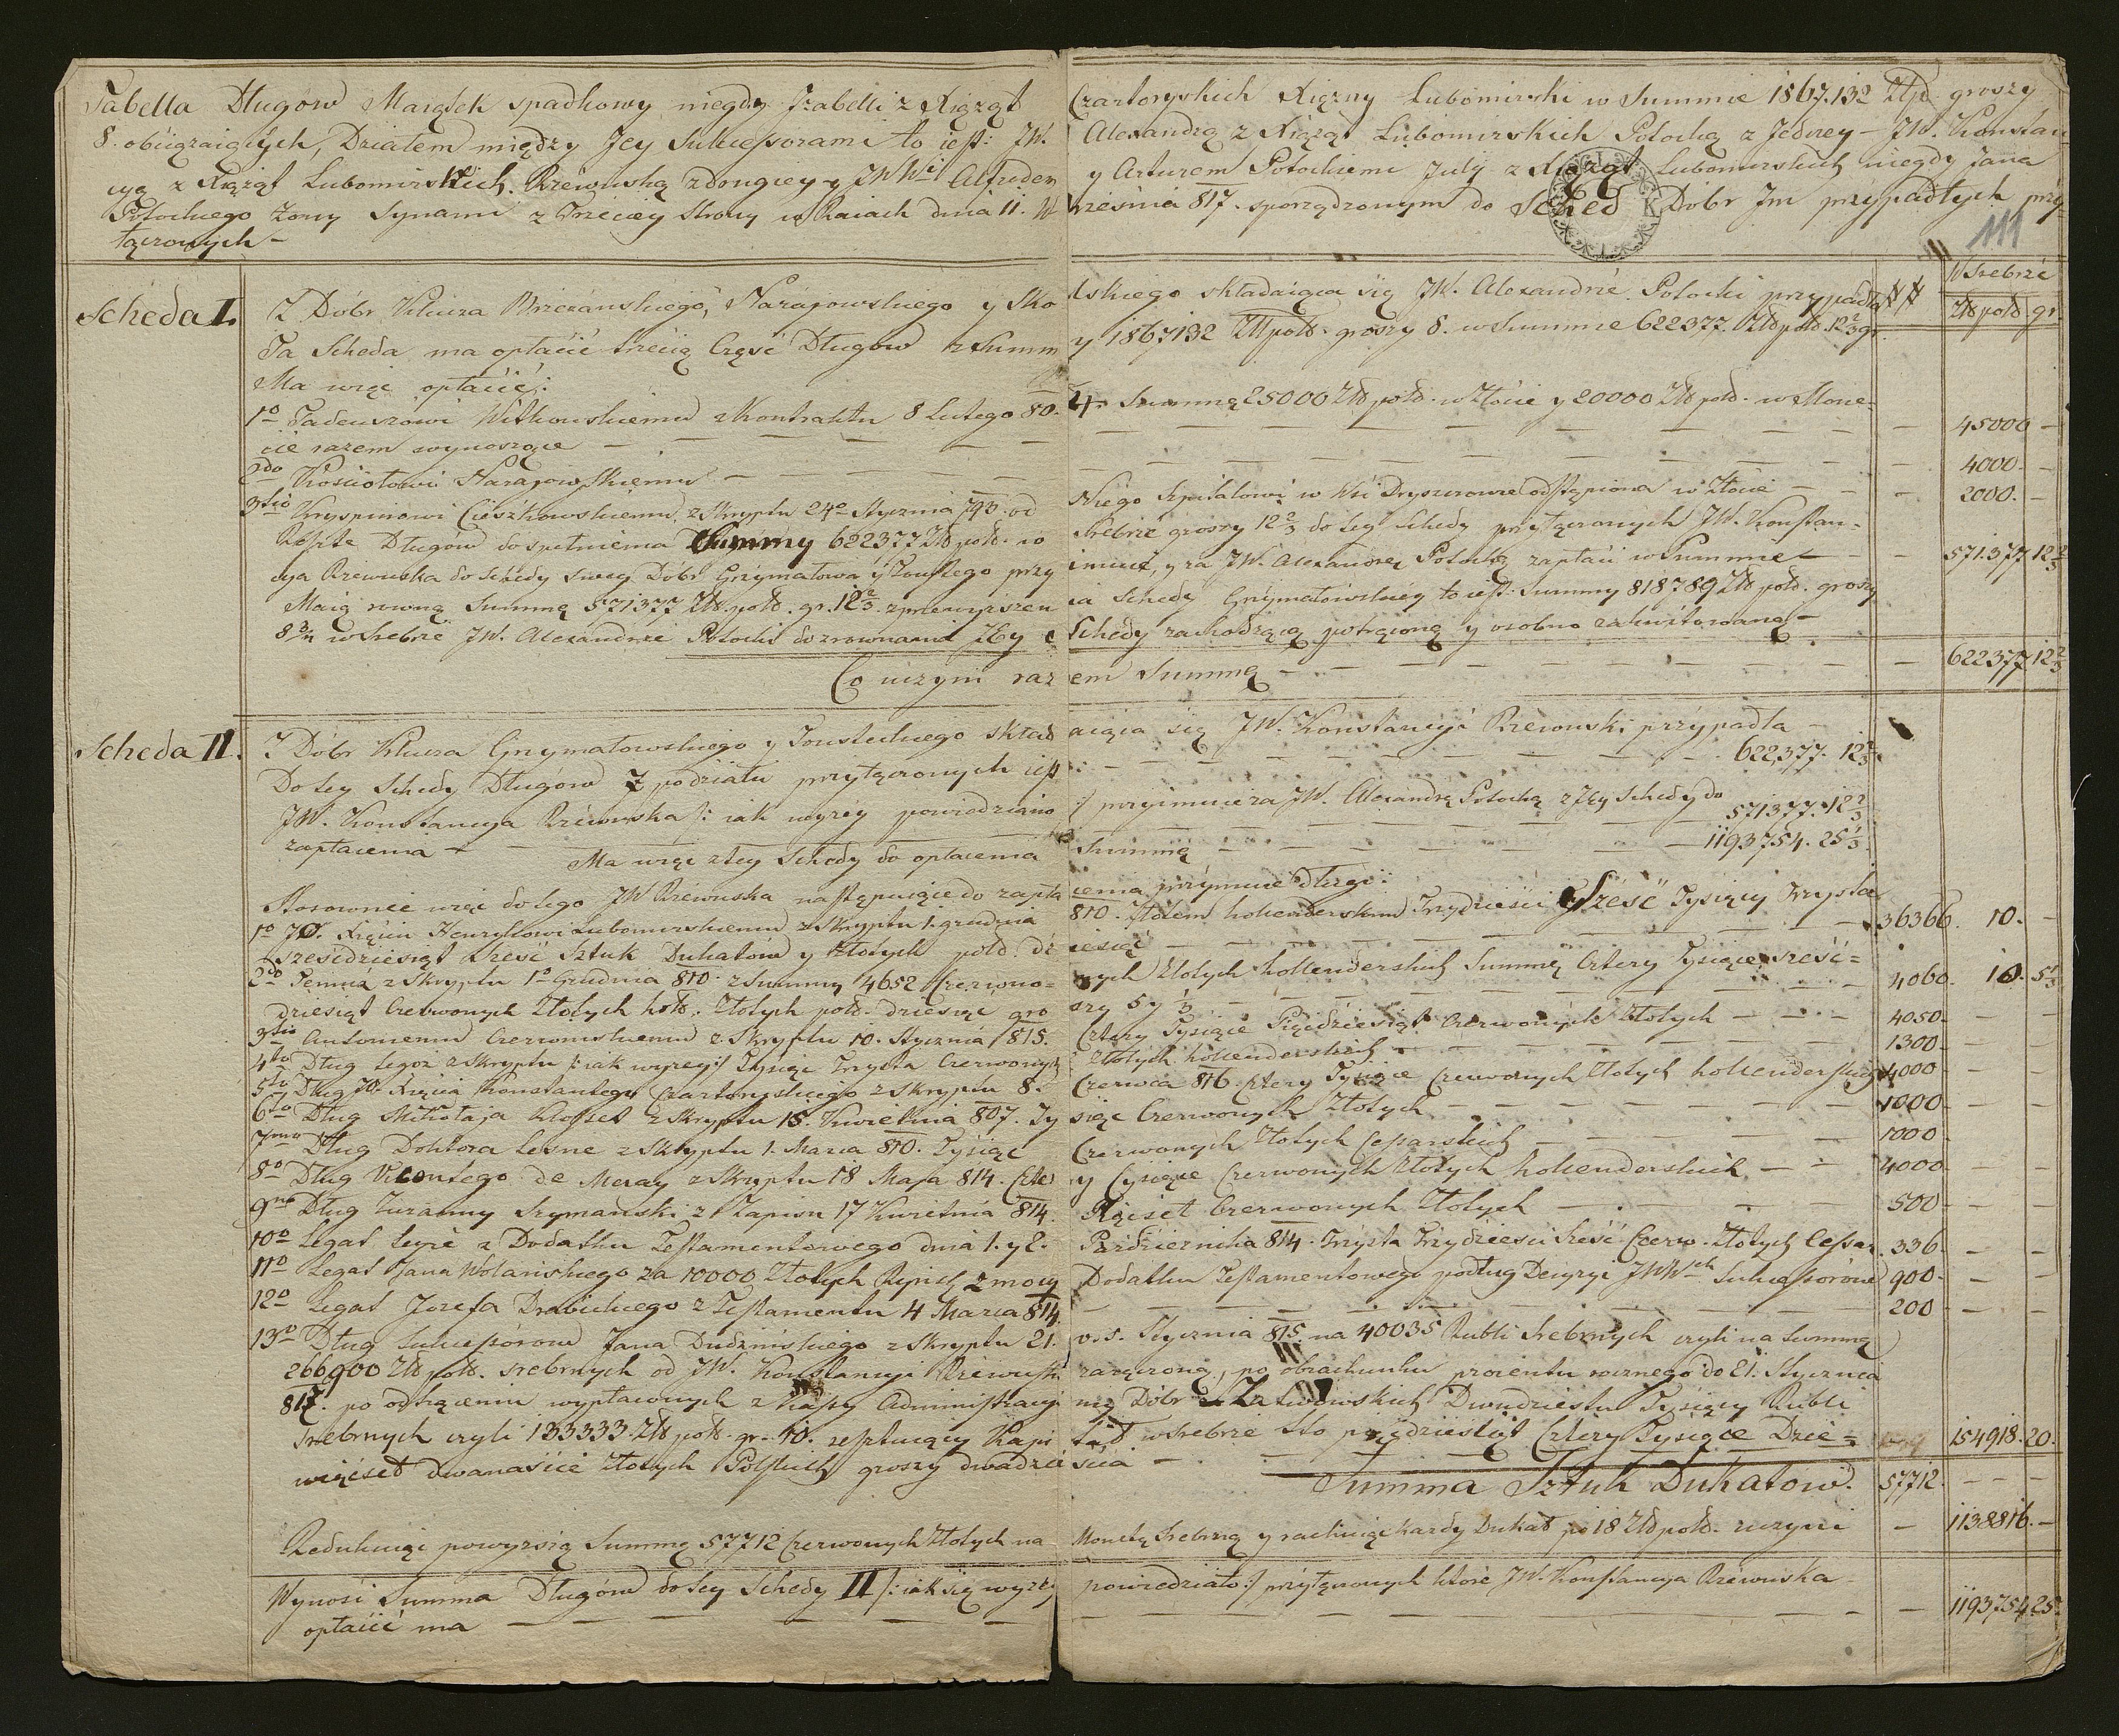 Tabella Długów Maiątek spadkowy niegdy Izabelli z Xiążąt Czartoryskich Xiężny Lubomirski w Summie 1867.132 Złp. groszy
8. obiiązaiących, Działem między Jey Sukcessorami to iest: JW. Alexandrą z Xiążąt Lubomirskich Potocką z Jedney – JW. Konstan
cyą z Xiążąt Lubomirskich Rzewuską z drugiey y JWWi Alfredem y Arturem Potockiemi Julij z Xiążąt Lubomirskich niegdy Jana
Potockiego żony Synami z Trzeciey Strony w Raiach dnia 11. Września 817. sporządzonym do Sched Dóbr Im przypadłych przy=
łączonych –
111
Scheda I.
W Srebrze
Złt połt. gr.
Z Dóbr Klucza Brzezańskiego, Narajowskiego y Sko lskiego składaiąca się JW. Alexandrze Potocki przypadła ##
Ta Scheda ma opłacić trzecią Część Długów z Summ y 1867132 Złt połt. groszy 8. w Summie 622377. Złt połt. 12 2/3 gr.
Ma więc opłacić:
1o Tadeuszowi Witkowskiemu z Kontraktu 8 Lutego 80 4. Summę 25000 Złt połt. w Złocie y 20000 Złt połt. w Mone=
cie razem wynoszące – – – 45000 –
2do Kościołowi Narajowskiemu – – – 4000. –
3tio Kryspinowi Cieszkowskiemu, z Skryptu 24o Stycznia 793. od Niego Szpitalowi w Wsi Dryszczowie odstąpiona w Złocie – – 2000. –
Resztę Długów do spełnienia Summy 622377 Złt połt. w Srebrze groszy 12 2/3 do tey Schedy przyłączonych JW. Konstan=
cya Rzewuska do Schedy swey Dóbr Grzymałowa y Toustego przy imuie, y za JW. Alexandrę Potocką zapłaci w Summie – – 571.377 12 2/3
Maią rowną Summę 571377 Złt. połt. gr. 12 2/3 z przewyższen ia Schedy Grzymałowskiey to iest: Summy 818789 Złt połt. groszy
8 3/4 w Srebrze JW. Alexandrze Potocki do zrownania Jey Schedy zachodzącą potrąconą y osobno zakwitowaną –
Co uczyni raz em Summę – – – 622377 12 2/3
Scheda II.
Z Dóbr Klucza Grzymałowskiego y Tousteckiego skład aiąca się JW. Konstancyi Rzewuski przypadła –
Do tey Schedy Długów z podziału przyłączonych iest: – – – 622,377. 12 2/3
JW. Konstancya Rzewuska /: iak wyżey powiedziano :/ przyimuie za JW. Alexandrę Potocką z Jey Schedy do
zapłacenia – – – 571377. 12 2/3
Ma więc z tey Schedy do opłacenia Summę – – – 1193754. 25 1/3
Stosownie więc do tego JW Rzewuska następuiące do zapła cenia przyimuie długi:
1o JO. Xięciu Henrykowi Lubomirskiemu z Skryptu 1. grudnia 810. Złotem hollenderskim Trzydzieści Sześć Tysięcy Trzysta
sześćdziesiąt sześć Sztuk Dukatów y Złotych połt. dz iesięć – – – 36366. 10. –
2do Temuż z Skryptu 1o Grudnia 810. z Summy 4652 Czerwo= nych Złotych hollenderskich Summę Cztery Tysiące sześć=
dziesiąt Czerwonych Złotych holl. Złotych połt. dziesięc gro szy 5 y 1/3 – – – 4060. 10. 5 1/3
3tio Antoniemu Czerwomskiemu z Skryptu 10. Stycznia 815. Cztery Tysiące Pięćdziesiąt Czerwonych Złotych – – – 4050 –
4to Dług tegoż z Skryptu /: iak wyżey :/ Tysiąc Trzysta Czerwonych Złotych hollenderskich – – – 1300 – –
5to Dług JO. Xięcia Konstantego Czartoryskiego z Skryptu 8. Czerwca 816. Cztery Tysiące Czerwonych Złotych hollenderskich 4000 – –
6to Dług Mikołaja Klosset z Skryptu 15. Kwietnia 807. Ty siąc Czerwonych Złotych – – – 1000 – –
7mo Dług Doktora Lesne z Skryptu 1. Marca 810. Tysiąc Czerwonych Złotych Cesarskich – – – 1000 – –
8o Dług Vicontego de Meray z Skryptu 18 Maja 814. Czter y Tysiące Czerwonych Złotych hollenderskich – – 4000 – –
9no Dług Zuzanny Szymanski z Zapisu 17 Kwietnia 814. Pięćset Czerwonych Złotych – – – 500 – –
10o Legat teyże z Dodatku Testamentowego dnia 1. y 2. Października 814. Trzysta Trzydzieści Sześć Czerw. Złotych Cesar. 336. – –
11o Legat Jana Wolańskiego za 10000 Złotych Ryńsk. z mocy Dodatku Testamentowego podług Decyzyi JWWch Sukcessorów 900 – –
12o Legat Jozefa Drobickiego z Testamentu 4 Marca 814. – – – 200 – –
13o Dług Sukcessorow Jana Dudzińskiego z Skryptu 21. v. s. Stycznia 815. na 40035 Rubli Srebrnych czyli na Summę
266900 Złt połt. srebrnych od JW. Konstancyi Rzewuski zaręczoną, po obrachunku procentu rocznego do 21. Stycznia
817. po odtrąceniu wypłaconych z Kassy Administracyi ney Dóbr Dwudziestu Tysięcy Rubli
Srebrnych czyli 133333. Złt połt. gr. 10. resztuiący Kapi tał w Srebrze Sto pięćdziesiąt Cztery Tysiące Dzie=
więćset Dwanaście Złotych Polskich groszy dwadzie ścia – – – 154918. 20.
Summa Sztuk Dukatow. 57712. – – –
Redukuiąc powyższą Summę 57712 Czerwonych Złotych na Monetę Srebrną y rachuiąc każdy Dukat po 18 Złt połt. uczyni – 1138816. –
Wynosi Summa Długów do tey Schedy II /: iak się wyżey powiedziało :/ przyłączonych które JW. Konstancya Rzewuska
opłacić ma – – – 1193754. 25